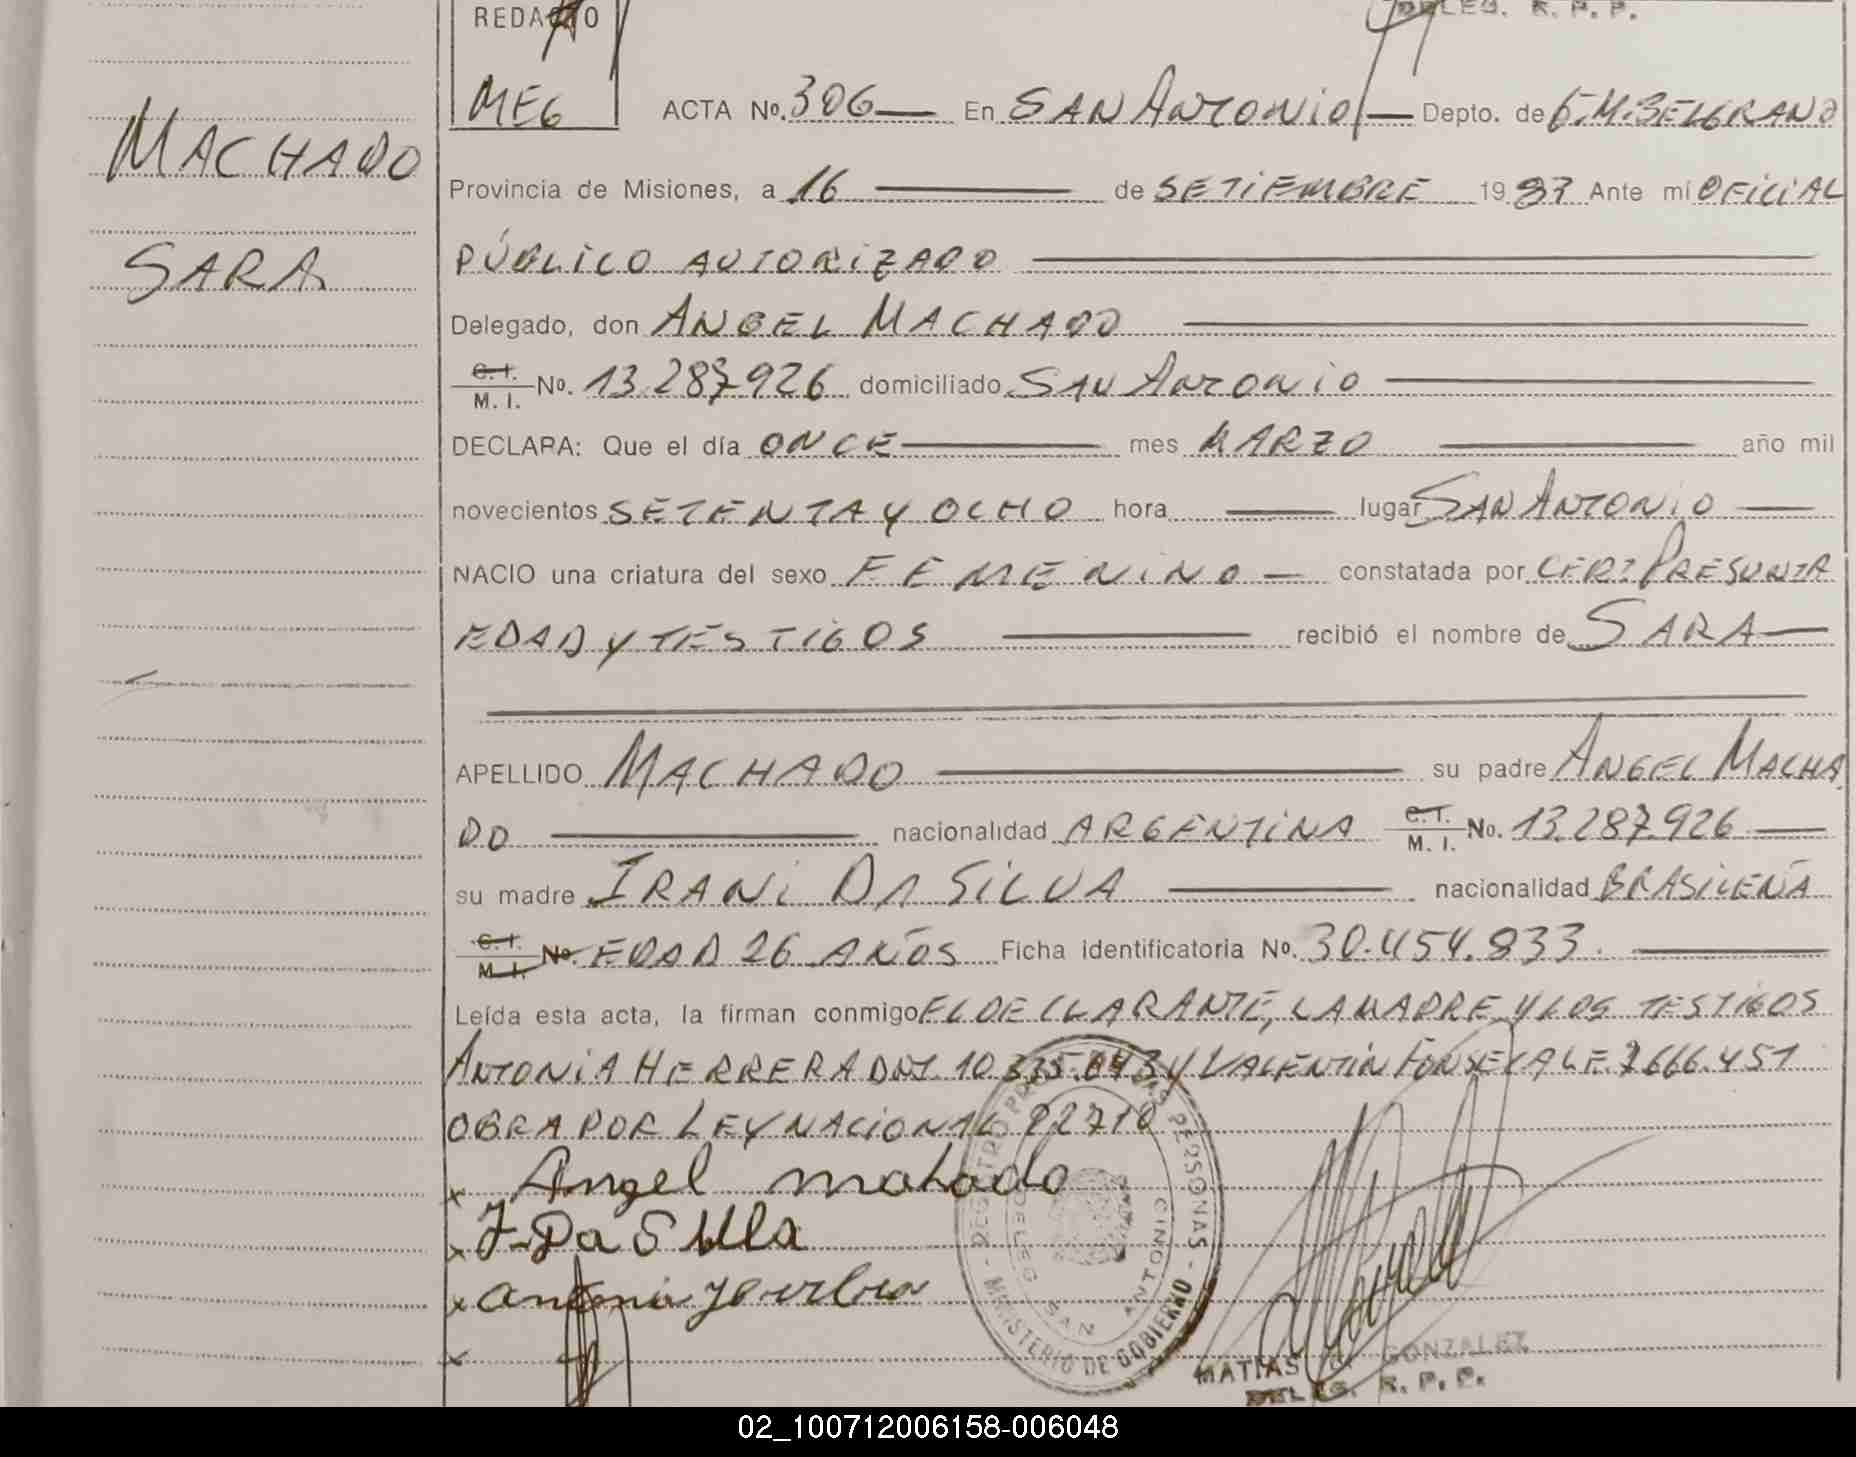 REDACTO
DELEG. R. P. P.
MEG
ACTA No. 306 En SAN ANTONIO Depto. de G.M. BELGRANO
MACHADO
Provincia de Misiones, a 16 de SETIEMBRE 1983 Ante mi OFICIAL
PÚBLICO AUTORIZADO
SARA
Delegado, don ANGEL MACHADO
C.I. M.I. No. 13.287.926 domiciliado SAN ANTONIO
DECLARA: Que el día ONCE mes MARZO año mil
novecientos SETENTA Y OCHO hora lugar SAN ANTONIO
NACIO una criatura del sexo FEMENINO constatada por CERT PRESUNTA
EDAD Y TESTIGOS recibió el nombre de SARA
APELLIDO MACHADO su padre ANGEL MACHA
DO nacionalidad ARGENTINA C.I. M.I. No. 13.287.926
su madre IRANI DA SILVA nacionalidad BRASILEÑA
C.I. M.I. No. EDAD 26 AÑOS Ficha identificatoria No. 30.454.833.
Leída esta acta, la firman conmigo EL DECLARANTE, LA MADRE Y LOS TESTIGOS
ANTONIA HERRERA DNI. 10.335.043 Y VALENTIN FONSECA L.E. 7.666.451
OBRA POR LEY NACIONAL 22710
x Angel mahado
x I-Da Silla
x
x
REGISTRO PERSONAS - MINISTERIO DE GOBIERNO -
DELEG SAN ANTONIO
MATIAS GONZALEZ
DELEG. R. P. P.
02_100712006158-006048